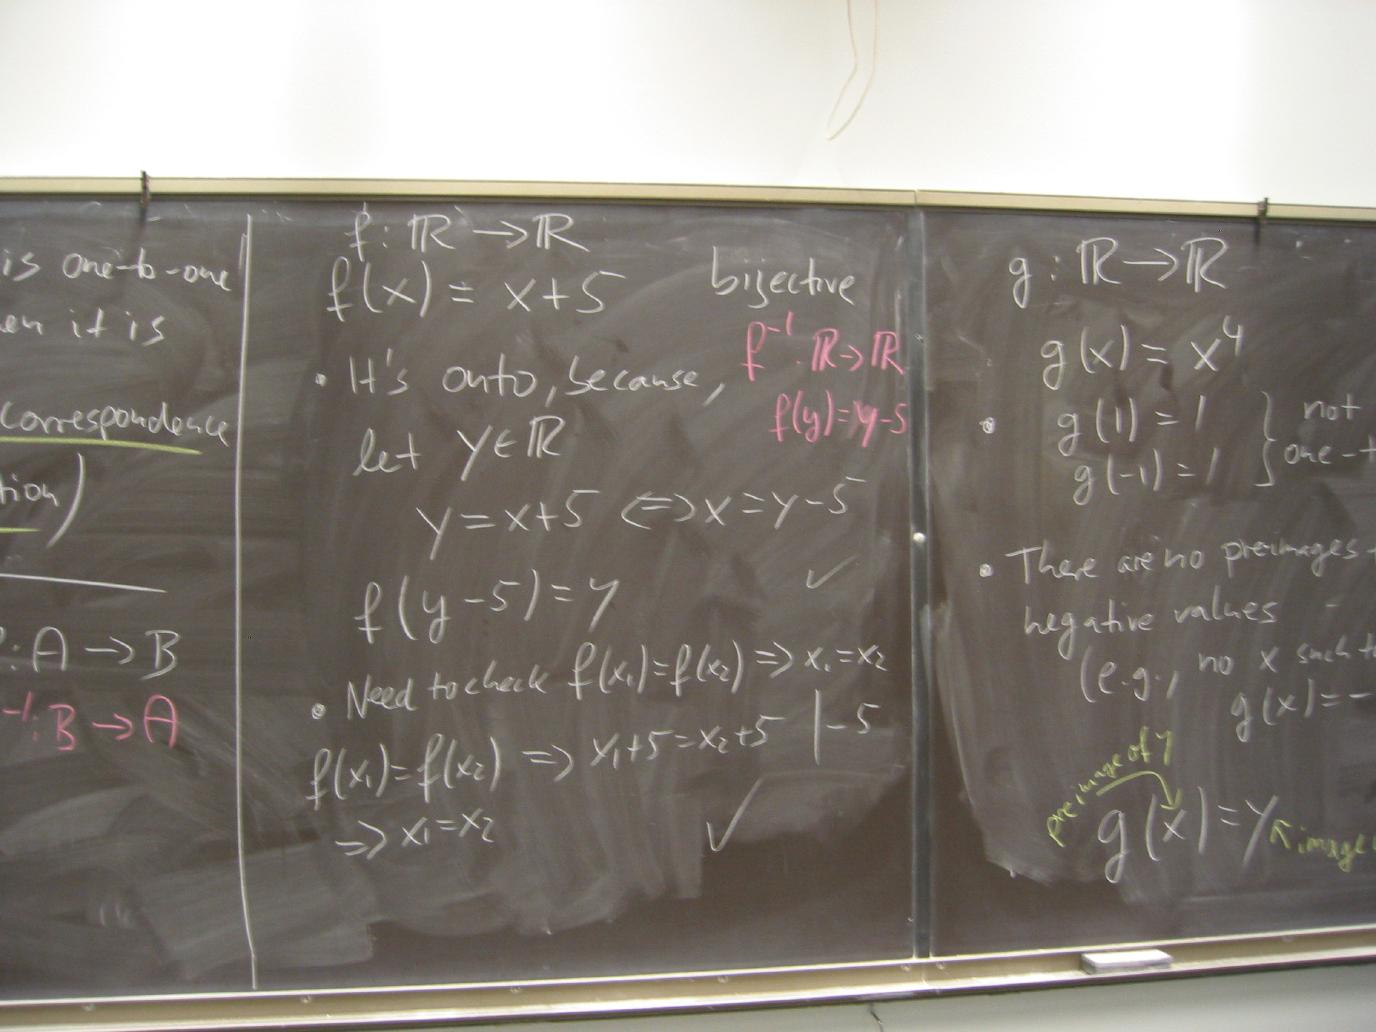 is one-to-one
it is
correspondence
: A → B
⁻¹: B → A
f: ℝ → ℝ
f(x) = x+5
bijective
f⁻¹: ℝ → ℝ
f(y) = y-5
• It's onto, because,
let y ∈ ℝ
y = x+5 ⇔ x = y-5
f(y-5) = y ✓
• Need to check f(x₁) = f(x₂) ⇒ x₁ = x₂
f(x₁) = f(x₂) ⇒ x₁+5 = x₂+5 | -5
⇒ x₁ = x₂ ✓
g: ℝ → ℝ
g(x) = x⁴
• g(1) = 1 } not
g(-1) = 1 one-
• There are no preimages
negative values -
(e.g., no x such
g(x) = -
preimage of y
g(x) = y ↖ image